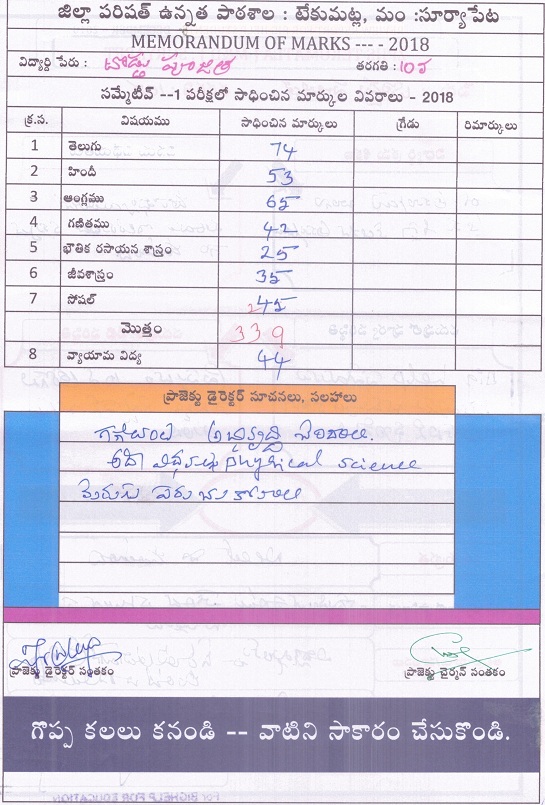 జిల్లా పరిషత్ ఉన్నత పాఠశాల : టేకుమట్ల, మం :సూర్యాపేట
MEMORANDUM OF MARKS ---- 2018
విద్యార్థి పేరు : తరగతి : 10వ
సమ్మేటీవ్ --1 పరీక్షలో సాధించిన మార్కుల వివరాలు - 2018
క్ర.స. విషయము సాధించిన మార్కులు గ్రేడు రిమార్కులు
1 తెలుగు 74
2 హింది 53
3 ఆంగ్లము 65
4 గణితము 42
5 భౌతిక రసాయన శాస్త్రం 25
6 జీవశాస్త్రం 35
7 సోషల్ 45
మొత్తం 339
8 వ్యాయామ విద్య 44
ప్రాజెక్టు డైరెక్టర్ సూచనలు, సలహాలు
గణితంలో అభివృద్ధి చెందాలి.
physical science
ప్రాజెక్టు డైరెక్టర్ సంతకం ప్రాజెక్టు చైర్మన్ సంతకం
గొప్ప కలలు కనండి -- వాటిని సాకారం చేసుకొండి.